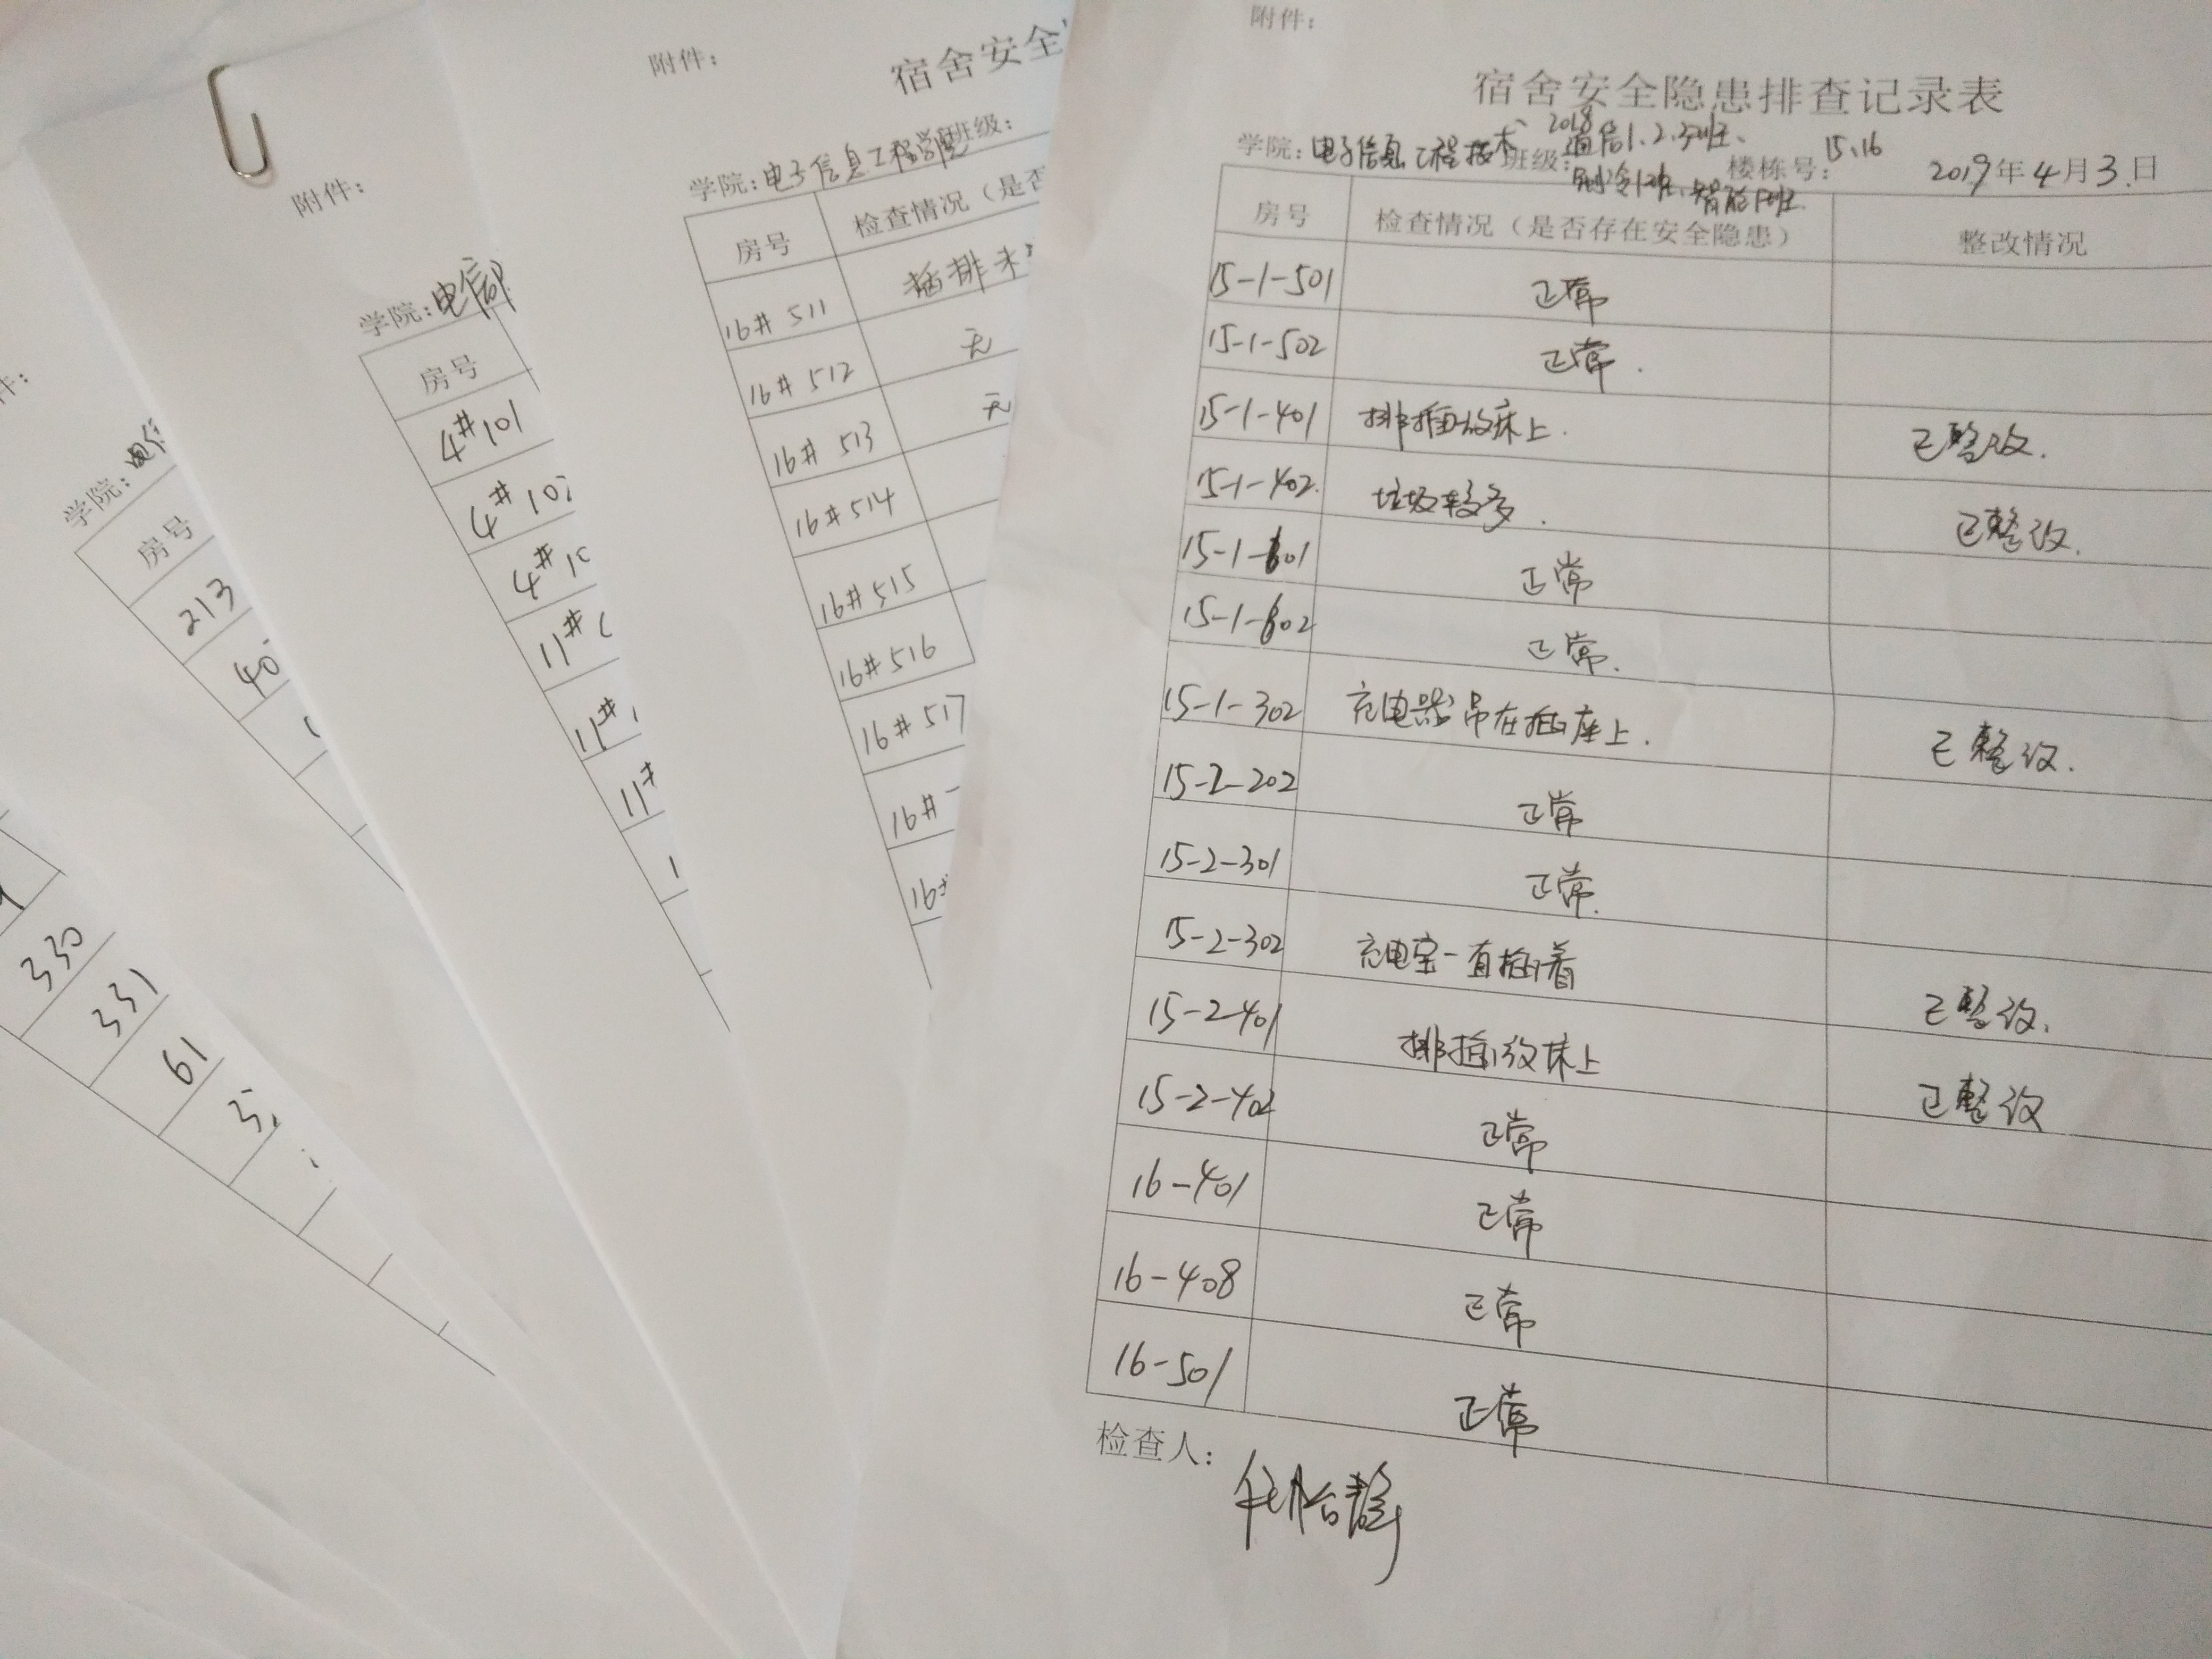 附件:
宿舍安全隐患排查记录表
学院: 电子信息工程技术、 班级: 2018通信1、2、3班、 楼栋号: 15、16 2019年4月3日
制冷1班、智能1班
房号 检查情况（是否存在安全隐患） 整改情况
15-1-501 正常
15-1-502 正常.
15-1-401 排插放床上. 已整改.
15-1-402. 垃圾较多. 已整改.
15-1-601 正常
15-1-602 正常.
15-1-302 充电器吊在插座上. 已整改.
15-2-202 正常
15-2-301 正常.
15-2-302 充电宝一直插着 已整改.
15-2-401 排插放床上 已整改
15-2-402 正常
16-401 正常
16-408 正常
16-501 正常
检查人:
附件:
宿舍安全
学院: 电子信息工程学院 班级:
房号 检查情况（是否
16# 511 插排未
16# 512 无
16# 513 无
16# 514
16# 515
16# 516
16# 517
16#
16#
附件:
学院: 电信部
房号
4#101
4#10
4#10
11#
11#
11#
件:
学院:
房号
213
40
330
331
61